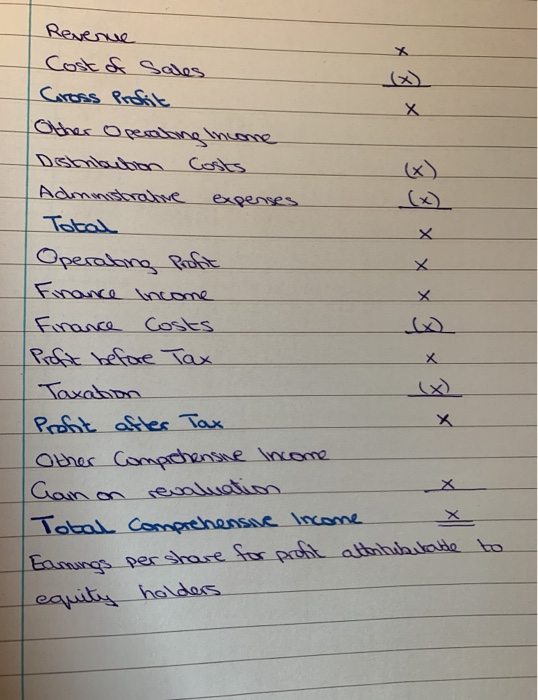 Revenue x
Cost of Sales (x)
Gross Profit x
Other Operating Income
Distribution Costs (x)
Administrative expenses (x)
Total x
Operating Profit x
Finance Income x
Finance Costs (x)
Profit before Tax x
Taxation (x)
Profit after Tax x
Other Comprehensive Income
Gain on revaluation x
Total Comprehensive Income x
Earnings per share for profit attributable to
equity holders